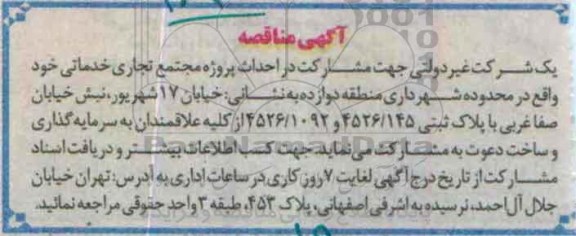 آگهی مناقصه
یک شرکت غیردولتی جهت مشارکت در احداث پروژه مجتمع تجاری خدماتی خود
واقع در محدوده شهرداری منطقه دوازده به نشانی: خیابان ۱۷ شهریور، نبش خیابان
صفا غربی با پلاک ثبتی ۴۵۲۶/۱۴۵ و ۴۵۲۶/۱۰۹۲ از کلیه علاقمندان به سرمایه گذاری
و ساخت دعوت به مشارکت می نماید. جهت کسب اطلاعات بیشتر و دریافت اسناد
مشارکت از تاریخ درج آگهی لغایت ۷ روز کاری در ساعات اداری به آدرس: تهران خیابان
جلال آل احمد، نرسیده به اشرفی اصفهانی، پلاک ۴۵۳، طبقه ۳ واحد حقوقی مراجعه نمائید.